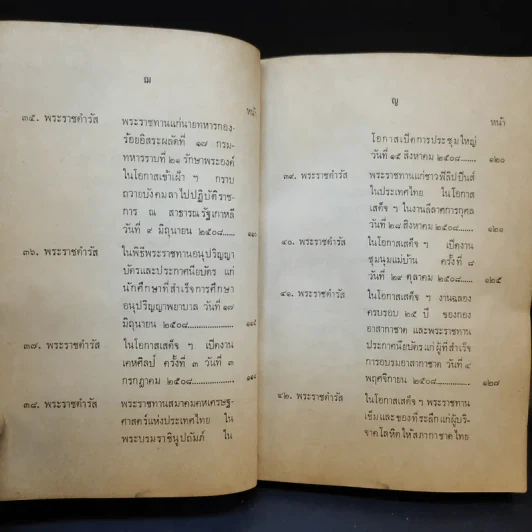 ฌ
หน้า
๓๕. พระราชดำรัส พระราชทานแก่นายทหารกอง-
ร้อยอิสระผลัดที่ ๑๗ กรม-
ทหารราบที่ ๒๑ รักษาพระองค์
ในโอกาสเข้าเฝ้า ฯ กราบ
ถวายบังคมลาไปปฏิบัติราช-
การ ณ สาธารณรัฐเกาหลี
วันที่ ๙ มิถุนายน ๒๕๐๘......
๓๖. พระราชดำรัส ในพิธีพระราชทานอนุปริญญา
บัตรและประกาศนียบัตร แก่
นักศึกษาที่สำเร็จการศึกษา
อนุปริญญาพยาบาล วันที่ ๑๗
มิถุนายน ๒๕๐๘......................
๓๗. พระราชดำรัส ในโอกาสเสด็จ ฯ เปิดงาน
เคหศิลป์ ครั้งที่ ๓ วันที่ ๓
กรกฎาคม ๒๕๐๘....................
๓๘. พระราชดำรัส พระราชทานสมาคมคหเศรษฐ-
ศาสตร์แห่งประเทศไทย ใน
พระบรมราชินูปถัมภ์ ใน
ญ
หน้า
โอกาสเปิดการประชุมใหญ่
วันที่ ๑๕ สิงหาคม ๒๕๐๘...... ๑๒๐
๓๙. พระราชดำรัส พระราชทานแก่ชาวฟิลิปปินส์
ในประเทศไทย ในโอกาส
เสด็จ ฯ ในงานลีลาศการกุศล
วันที่ ๒๘ สิงหาคม ๒๕๐๘...... ๑๒๑
๔๐. พระราชดำรัส ในโอกาสเสด็จ ฯ เปิดงาน
ชุมนุมแม่บ้าน ครั้งที่ ๘
วันที่ ๒๙ ตุลาคม ๒๕๐๘........ ๑๒๕
๔๑. พระราชดำรัส ในโอกาสเสด็จ ฯ งานฉลอง
ครบรอบ ๒๕ ปี ของกอง
อาสากาชาด และพระราชทาน
ประกาศนียบัตรแก่ผู้ที่สำเร็จ
การอบรมอาสากาชาด วันที่ ๔
พฤศจิกายน ๒๕๐๘................ ๑๒๘
๔๒. พระราชดำรัส ในโอกาสเสด็จ ฯ พระราชทาน
เข็มและของที่ระลึกแก่ผู้บริ-
จาคโลหิตให้สภากาชาดไทย